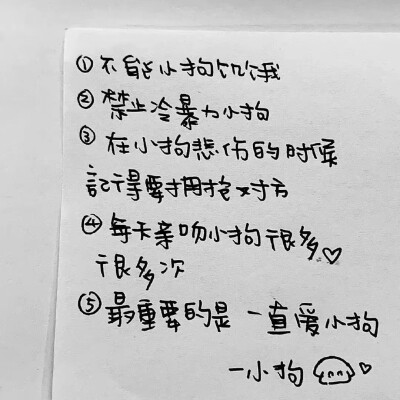 ①不能小狗饥饿
②禁止冷暴力小狗
③在小狗悲伤的时候
記得要拥抱对方
④每天亲吻小狗很多♡
很多次
⑤最重要的是 一直爱小狗
一小狗